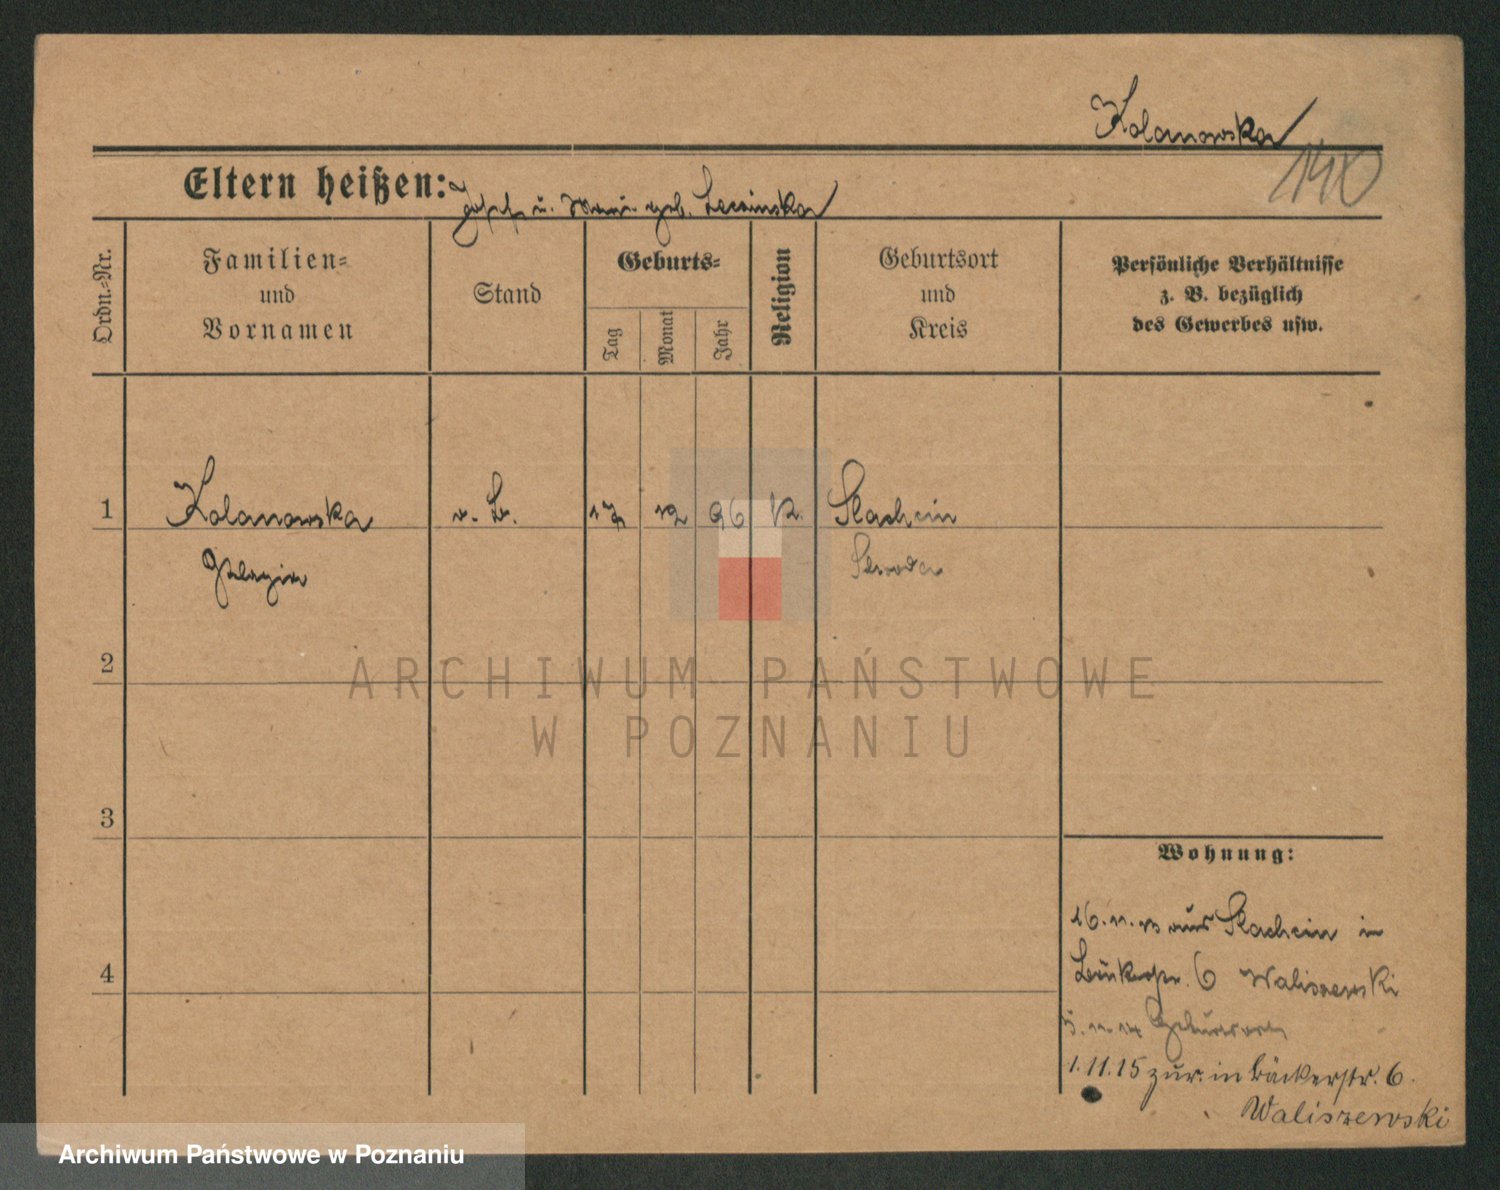 Kolanowska
140
Eltern heißen: Josef u. Marie geb. Lewinska
Ordn.=Nr.
Familien=
und
Vornamen
Stand
Geburts=
Tag
Monat
Jahr
Religion
Geburtsort
und
Kreis
Persönliche Verhältnisse
z. B. bezüglich
des Gewerbes usw.
1 Kolanowska 17 12 96 K. Slachcin
Pelagia Schroda
2
3
4
Wohnung:
16. 11. 13 aus Slachcin in
Bäckerstr. 6 Waliszewski
11. 14 Geburtsort
1. 11. 15 zur. in Bäckerstr. 6.
Waliszewski
ARCHIWUM PAŃSTWOWE
W POZNANIU
Archiwum Państwowe w Poznaniu